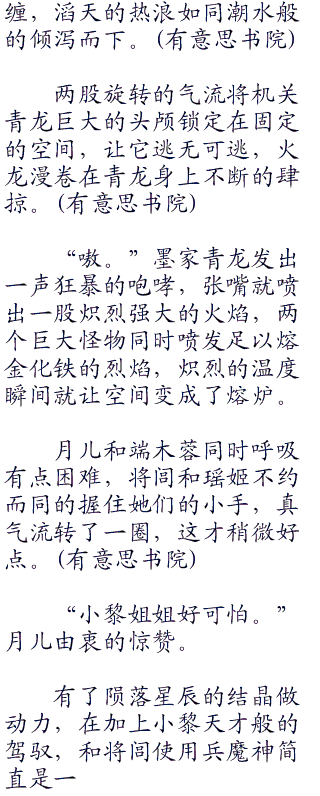 缠，滔天的热浪如同潮水般
的倾泻而下。(有意思书院)
两股旋转的气流将机关
青龙巨大的头颅锁定在固定
的空间，让它逃无可逃，火
龙漫卷在青龙身上不断的肆
掠。(有意思书院)
“嗷。”墨家青龙发出
一声狂暴的咆哮，张嘴就喷
出一股炽烈强大的火焰，两
个巨大怪物同时喷发足以熔
金化铁的烈焰，炽烈的温度
瞬间就让空间变成了熔炉。
月儿和端木蓉同时呼吸
有点困难，将闾和瑶姬不约
而同的握住她们的小手，真
气流转了一圈，这才稍微好
点。(有意思书院)
“小黎姐姐好可怕。”
月儿由衷的惊赞。
有了陨落星辰的结晶做
动力，在加上小黎天才般的
驾驭，和将闾使用兵魔神简
直是一